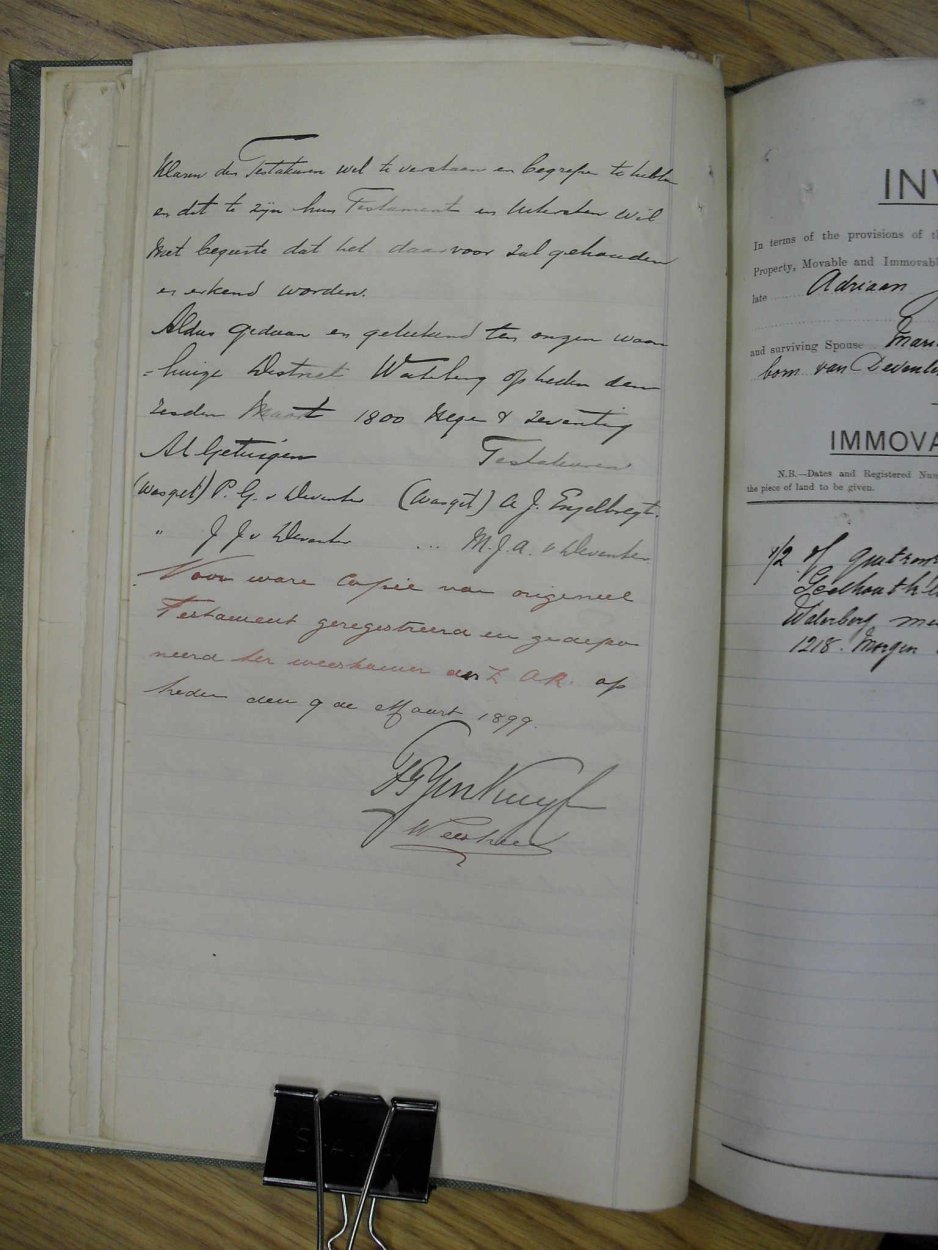 klaren de Testateuren wel te verstaen en begrepen te hebben
en dit te zijn hun Testament en Uitersten Wil
Met begeerte dat het daarvoor zal gehouden
en erkend worden.
Aldus gedaan en geteekend ten onzen woon
=huize District Waterberg op heden den
zesden Maart 1800 Nege & Zeventig
Als Getuigen Testateuren
(Wasget) P. G. v Deventer (Wasget) A J. Engelbregt.
" J J v Deventer ... M. J. A. v Deventer
Voor ware Copie van origineel
Testament geregistreerd en gedepo
neerd ter weeskamer der Z. A. R. op
heden den 9 de Maart 1899.
Weesheer
INV
In terms of the provisions of th
Property, Movable and Immovabl
late Adriaan J
and surviving Spouse Mari
born van Devente
IMMOVA
N.B.—Dates and Registered Num
the piece of land to be given.
1/2 of
Waterberg
1218. Morgen